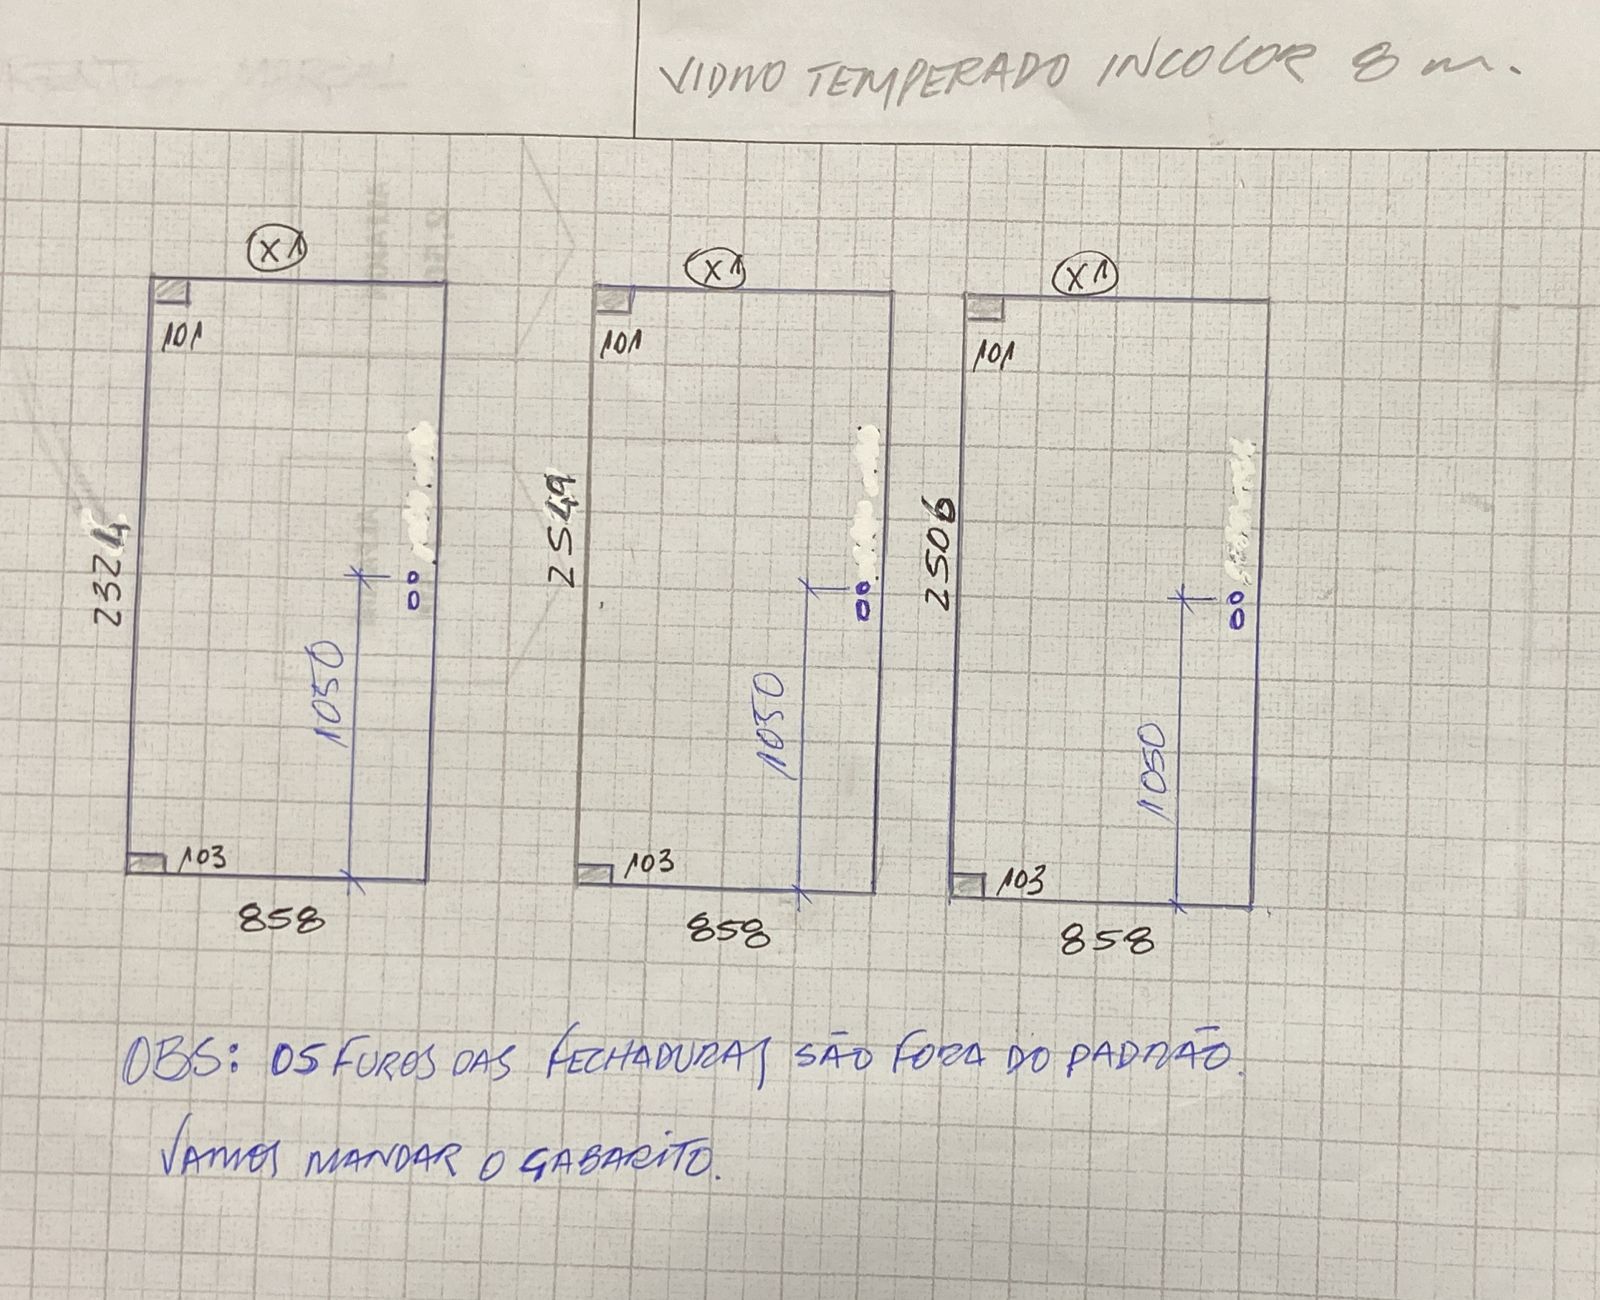 VIDRO TEMPERADO INCOLOR 8 m.
X1
X1
X1
101
101
101
2324
2549
2506
1050
1050
1050
103
103
103
858
858
858
OBS: OS FUROS DAS FECHADURAS SÃO FORA DO PADRÃO.
VAMOS MANDAR O GABARITO.